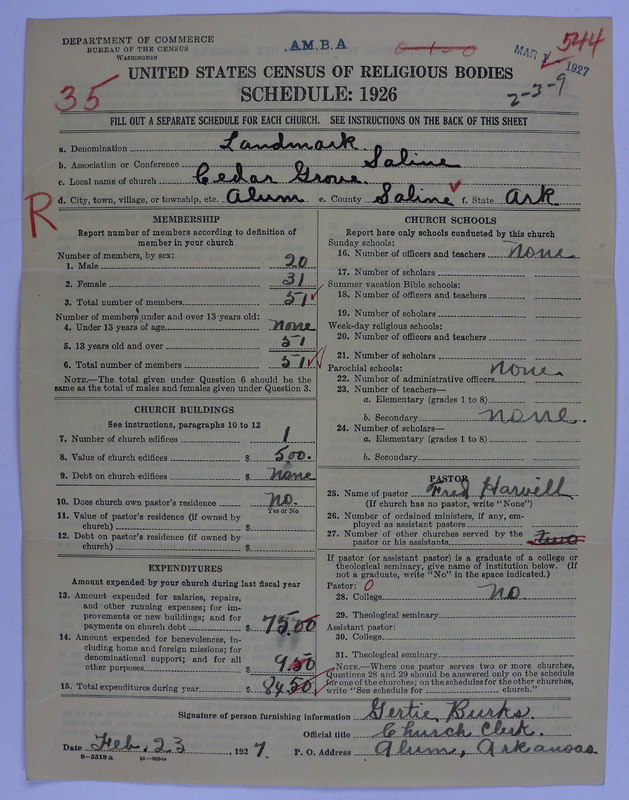 DEPARTMENT OF COMMERCE
BUREAU OF THE CENSUS
WASHINGTON
A.M.B.A
0-1-0
MAR 1927
544
35
UNITED STATES CENSUS OF RELIGIOUS BODIES
SCHEDULE: 1926
2-3-9
FILL OUT A SEPARATE SCHEDULE FOR EACH CHURCH. SEE INSTRUCTIONS ON THE BACK OF THIS SHEET
a. Denomination Landmark
b. Association or Conference Saline
c. Local name of church Cedar Grove
d. City, town, village, or township, etc. Alum e. County Saline f. State Ark
R
MEMBERSHIP
Report number of members according to definition of member in your church
Number of members, by sex:
1. Male 20
2. Female 31
3. Total number of members 51
Number of members under and over 13 years old:
4. Under 13 years of age none
5. 13 years old and over 51
6. Total number of members 51
NOTE.—The total given under Question 6 should be the same as the total of males and females given under Question 3.
CHURCH BUILDINGS
See instructions, paragraphs 10 to 12
7. Number of church edifices 1
8. Value of church edifices $ 500.
9. Debt on church edifices $ none
10. Does church own pastor's residence no.
Yes or No
11. Value of pastor's residence (if owned by church) $
12. Debt on pastor's residence (if owned by church) $
EXPENDITURES
Amount expended by your church during last fiscal year
13. Amount expended for salaries, repairs, and other running expenses; for improvements or new buildings; and for payments on church debt $ 75.00
14. Amount expended for benevolences, including home and foreign missions; for denominational support; and for all other purposes $ 9.50
15. Total expenditures during year $ 84.50
CHURCH SCHOOLS
Report here only schools conducted by this church
Sunday schools:
16. Number of officers and teachers none
17. Number of scholars
Summer vacation Bible schools:
18. Number of officers and teachers
19. Number of scholars
Week-day religious schools:
20. Number of officers and teachers
21. Number of scholars
Parochial schools: none
22. Number of administrative officers
23. Number of teachers—
a. Elementary (grades 1 to 8)
b. Secondary none.
24. Number of scholars—
a. Elementary (grades 1 to 8)
b. Secondary
PASTOR
25. Name of pastor Fred Harwell
(If church has no pastor, write "None")
26. Number of ordained ministers, if any, employed as assistant pastors
27. Number of other churches served by the pastor or his assistants two
If pastor (or assistant pastor) is a graduate of a college or theological seminary, give name of institution below. (If not a graduate, write "No" in the space indicated.)
Pastor: 0
28. College no
29. Theological seminary
Assistant pastor:
30. College
31. Theological seminary
NOTE.—Where one pastor serves two or more churches, Questions 28 and 29 should be answered only on the schedule for one of the churches; on the schedules for the other churches, write "See schedule for church."
Signature of person furnishing information Gertie Burks.
Official title Church Clerk.
Date Feb. 23, 1927. P. O. Address Alum, Arkansas
8-5518a